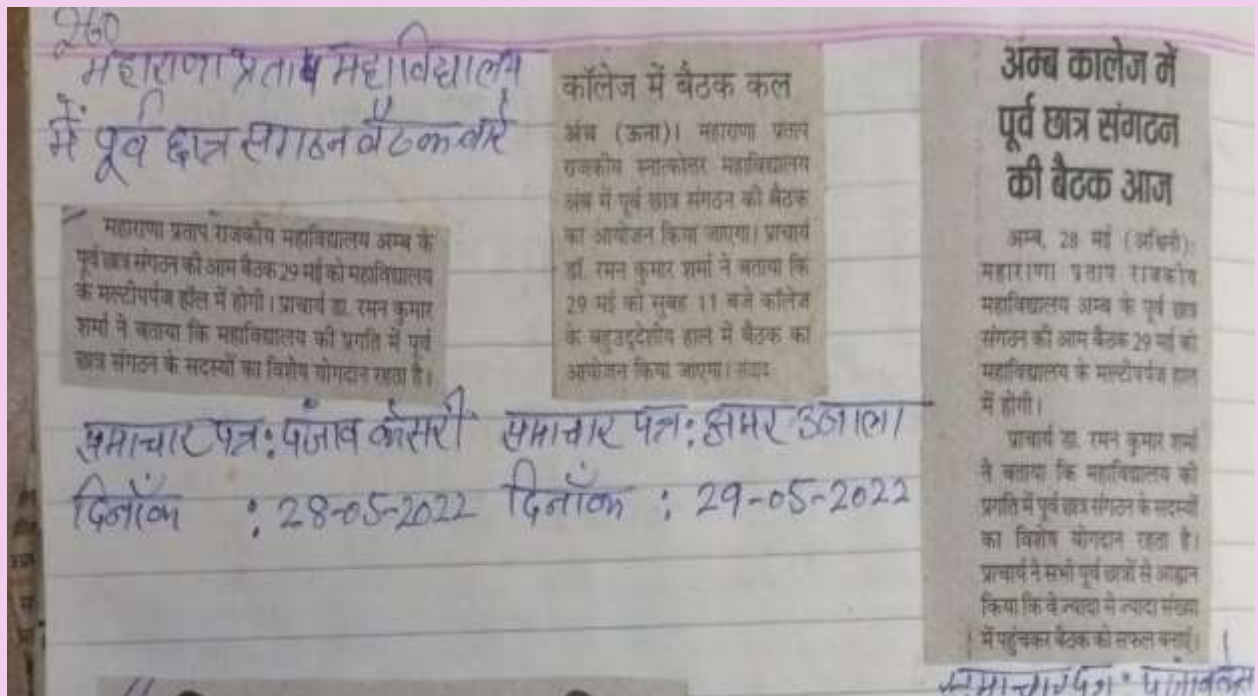 260
महाराणा प्रताप महाविद्यालय
में पूर्व छात्र संगठन बैठक बारे
महाराणा प्रताप राजकीय महाविद्यालय अम्ब के
पूर्व छात्र संगठन की आम बैठक 29 मई को महाविद्यालय
के मल्टीपर्पज हॉल में होगी। प्राचार्य डा. रमन कुमार
शर्मा ने बताया कि महाविद्यालय की प्रगति में पूर्व
छात्र संगठन के सदस्यों का विशेष योगदान रहता है।
समाचार पत्र: पंजाब केसरी
दिनाँक : 28-05-2022
कॉलेज में बैठक कल
अंब (ऊना)। महाराणा प्रताप
राजकीय स्नातकोत्तर महाविद्यालय
अंब में पूर्व छात्र संगठन की बैठक
का आयोजन किया जाएगा। प्राचार्य
डॉ. रमन कुमार शर्मा ने बताया कि
29 मई को सुबह 11 बजे कॉलेज
के बहुउद्देशीय हाल में बैठक का
आयोजन किया जाएगा। संवाद
समाचार पत्र: अमर उजाला
दिनाँक : 29-05-2022
अम्ब कालेज में
पूर्व छात्र संगठन
की बैठक आज
अम्ब, 28 मई (अश्विनी):
महाराणा प्रताप राजकीय
महाविद्यालय अम्ब के पूर्व छात्र
संगठन की आम बैठक 29 मई को
महाविद्यालय के मल्टीपर्पज हाल
में होगी।
प्राचार्य डा. रमन कुमार शर्मा
ने बताया कि महाविद्यालय की
प्रगति में पूर्व छात्र संगठन के सदस्यों
का विशेष योगदान रहता है।
प्राचार्य ने सभी पूर्व छात्रों से आह्वान
किया कि वे ज्यादा से ज्यादा संख्या
में पहुंचकर बैठक को सफल बनाएं।
समाचार पत्र: